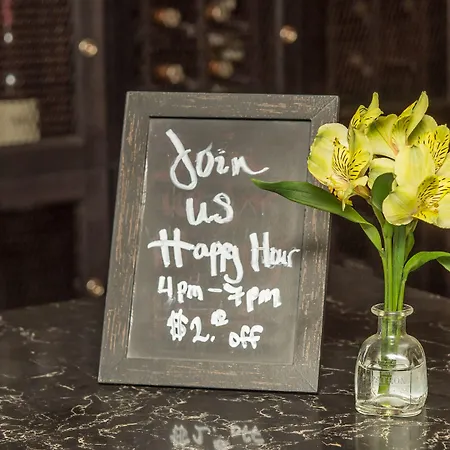 Join
us
Happy Hour
4pm - 7pm
$2.00 off